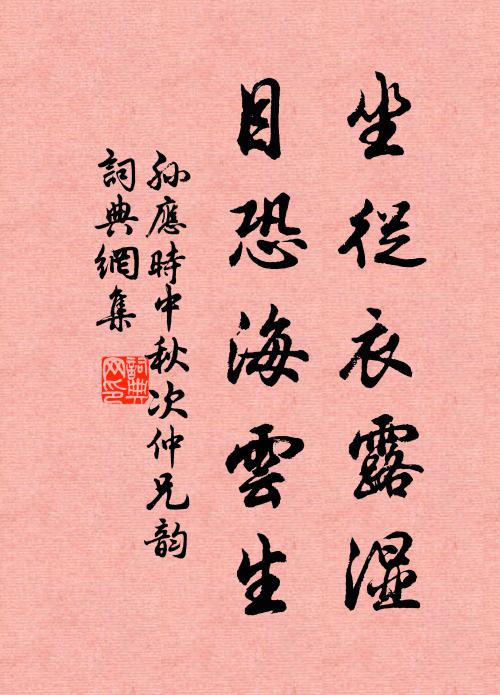 坐從衣露湿
目恐海雲生
孫應時中秋次仲兄韵
詞典網集
詞典网印